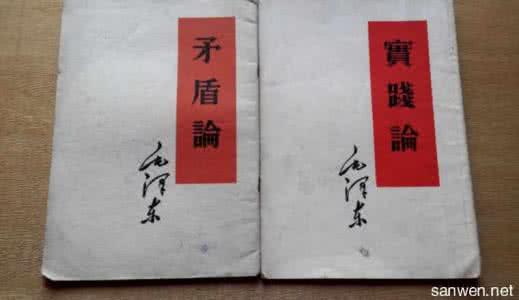 矛盾論
毛泽东
實踐論
毛泽东
sanwen.net